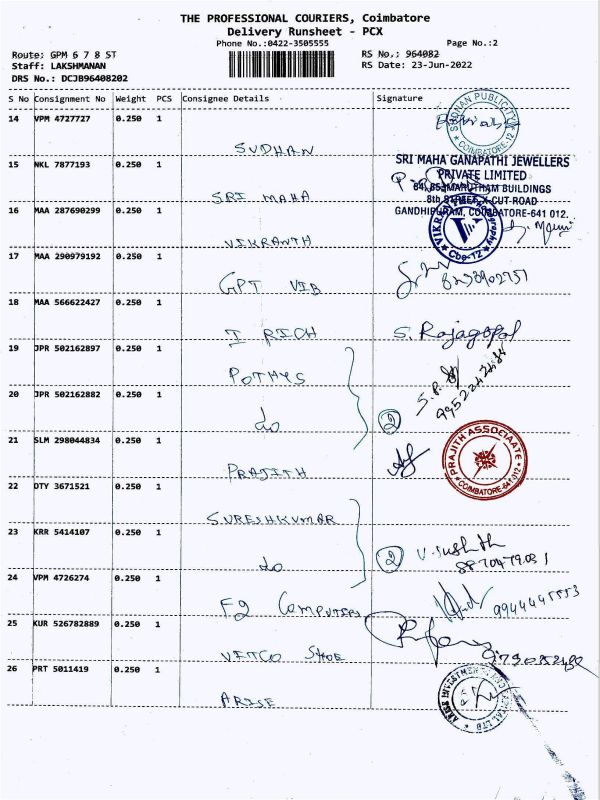 THE PROFESSIONAL COURIERS, Coimbatore
Delivery Runsheet - PCX
Phone No.:0422-3505555
Page No.:2
Route: GPM 6 7 8 ST
RS No.: 964082
Staff: LAKSHMANAN
RS Date: 23-Jun-2022
DRS No.: DCJB96408202
S No Consignment No Weight PCS Consignee Details Signature
14 VPM 4727727 0.250 1
SUDHAN
COIMBATORE-12
15 NKL 7877193 0.250 1
SRI MAHA
SRI MAHA GANAPATHI JEWELLERS
PRIVATE LIMITED
MARUTHAM BUILDINGS
8th STREET, X-CUT ROAD
GANDHIPURAM, COIMBATORE-641 012.
16 MAA 287690299 0.250 1
VIKRANTH
Cbe-12
17 MAA 290979192 0.250 1
GPT VIB
18 MAA 566622427 0.250 1
I RICH
S. Rajagopal
19 JPR 502162897 0.250 1
POTHYS
20 JPR 502162882 0.250 1
do
2
21 SLM 298044834 0.250 1
PRAJITH
PRAJITH ASSOCIAATE
COIMBATORE-641 012
22 DTY 3671521 0.250 1
SURESHKUMAR
23 KRR 5414107 0.250 1
do
2
24 VPM 4726274 0.250 1
F2 COMPUTERS
9944445553
25 KUR 526782889 0.250 1
VITCO SHOE
26 PRT 5011419 0.250 1
ARISE